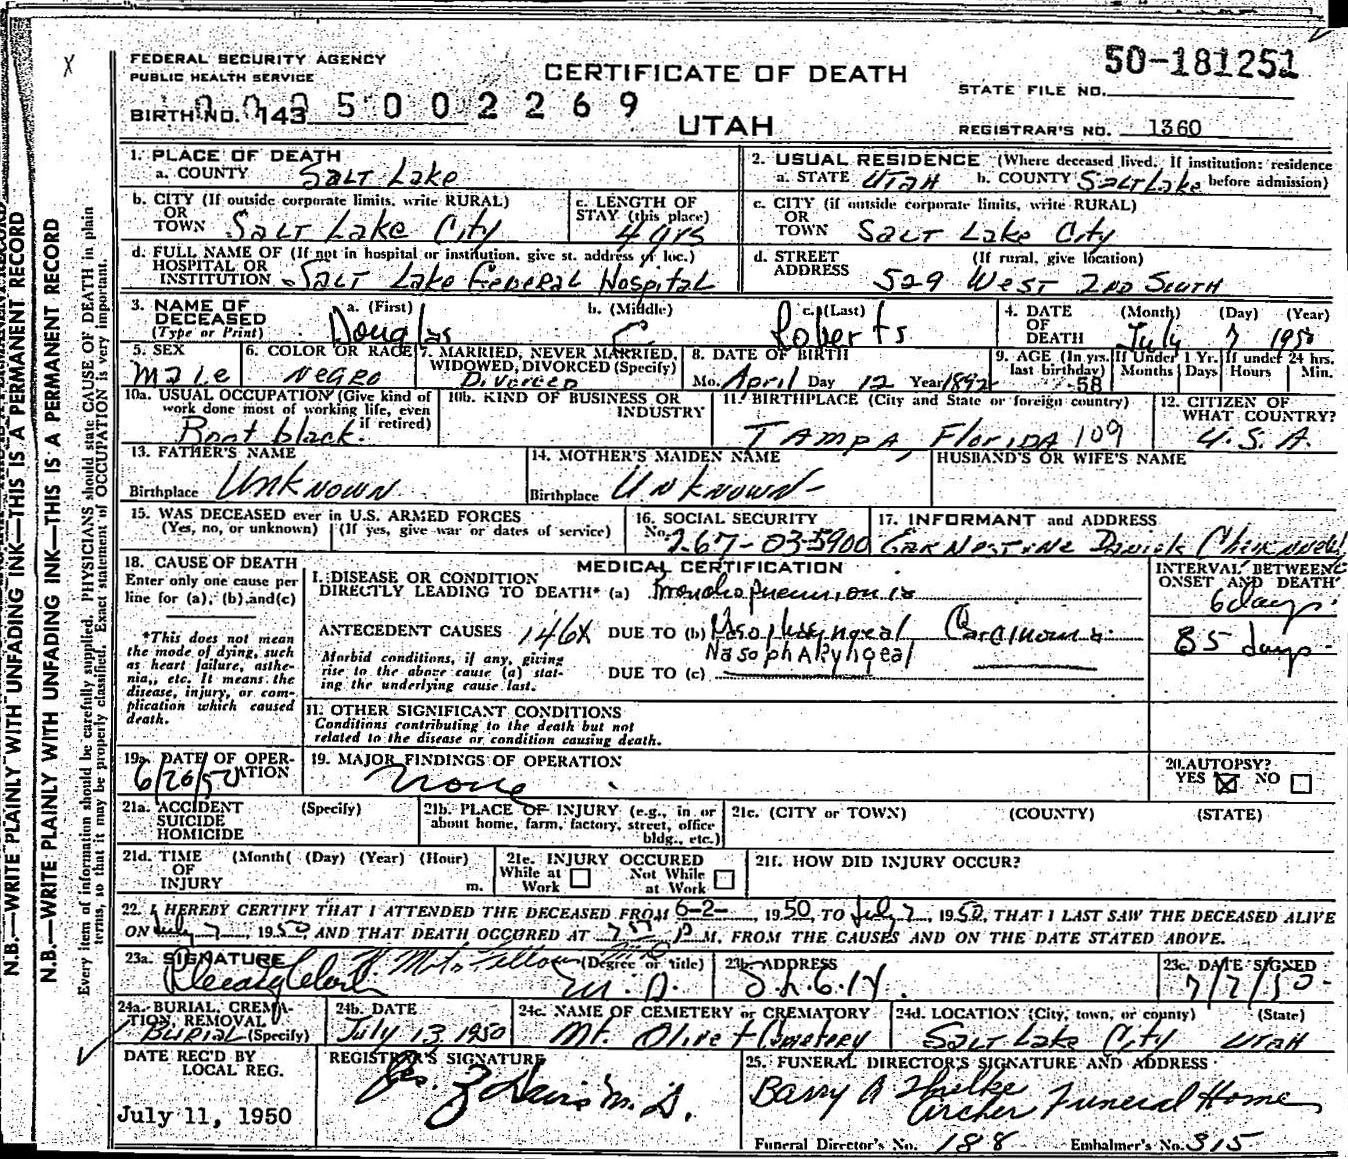 FEDERAL SECURITY AGENCY
PUBLIC HEALTH SERVICE
CERTIFICATE OF DEATH
50-181251
STATE FILE NO.
BIRTH NO. 143 5002269
UTAH
REGISTRAR'S NO. 1360
1. PLACE OF DEATH
a. COUNTY Salt Lake
2. USUAL RESIDENCE (Where deceased lived. If institution: residence before admission)
a. STATE Utah b. COUNTY Salt Lake
b. CITY (If outside corporate limits, write RURAL) OR TOWN Salt Lake City
c. LENGTH OF STAY (this place) 4 yrs
c. CITY (if outside corporate limits, write RURAL) OR TOWN Salt Lake City
d. FULL NAME OF (If not in hospital or institution, give st. address or loc.) HOSPITAL OR INSTITUTION Salt Lake General Hospital
d. STREET ADDRESS (If rural, give location) 529 West 2nd South
3. NAME OF DECEASED (Type or Print)
a. (First) Douglas b. (Middle) C c. (Last) Roberts
4. DATE OF DEATH (Month) (Day) (Year) July 7 1950
5. SEX Male
6. COLOR OR RACE Negro
7. MARRIED, NEVER MARRIED, WIDOWED, DIVORCED (Specify) Divorced
8. DATE OF BIRTH Mo. April Day 12 Year 1892
9. AGE (In yrs. last birthday) 58
If Under 1 Yr. Months Days
If under 24 hrs. Hours Min.
10a. USUAL OCCUPATION (Give kind of work done most of working life, even if retired) Boot black.
10b. KIND OF BUSINESS OR INDUSTRY
11. BIRTHPLACE (City and State or foreign country) Tampa, Florida 109
12. CITIZEN OF WHAT COUNTRY? U.S.A.
13. FATHER'S NAME
Birthplace Unknown
14. MOTHER'S MAIDEN NAME
Birthplace Unknown
HUSBAND'S OR WIFE'S NAME
15. WAS DECEASED ever in U.S. ARMED FORCES
(Yes, no, or unknown) (If yes, give war or dates of service)
16. SOCIAL SECURITY No. 267-03-5900
17. INFORMANT and ADDRESS
Earnestine
18. CAUSE OF DEATH
Enter only one cause per line for (a), (b), and (c)
*This does not mean the mode of dying, such as heart failure, asthenia, etc. It means the disease, injury, or complication which caused death.
MEDICAL CERTIFICATION
INTERVAL BETWEEN ONSET AND DEATH
I. DISEASE OR CONDITION DIRECTLY LEADING TO DEATH* (a) Bronchopneumonia 6 days.
ANTECEDENT CAUSES 146X DUE TO (b) Nasopharyngeal Carcinoma. 85 days.
Nasopharyngeal
Morbid conditions, if any, giving rise to the above cause (a) stating the underlying cause last. DUE TO (c)
II. OTHER SIGNIFICANT CONDITIONS
Conditions contributing to the death but not related to the disease or condition causing death.
19a. DATE OF OPERATION 6/26/50
19. MAJOR FINDINGS OF OPERATION None
20. AUTOPSY? YES ☒ NO ☐
21a. ACCIDENT SUICIDE HOMICIDE (Specify)
21b. PLACE OF INJURY (e.g., in or about home, farm, factory, street, office bldg., etc.)
21c. (CITY or TOWN) (COUNTY) (STATE)
21d. TIME OF INJURY (Month) (Day) (Year) (Hour) m.
21e. INJURY OCCURED While at Work ☐ Not While at Work ☐
21f. HOW DID INJURY OCCUR?
22. I HEREBY CERTIFY THAT I ATTENDED THE DECEASED FROM 6-2-, 1950, TO July 7, 1950, THAT I LAST SAW THE DECEASED ALIVE
ON July 7, 1950, AND THAT DEATH OCCURED AT P M, FROM THE CAUSES AND ON THE DATE STATED ABOVE.
23a. SIGNATURE (Degree or title) M.D.
23b. ADDRESS S.L.G.H.
23c. DATE SIGNED 7/7/50
24a. BURIAL, CREMATION, REMOVAL (Specify) Burial
24b. DATE July 13, 1950
24c. NAME OF CEMETERY or CREMATORY Mt. Olivet Cemetery
24d. LOCATION (City, town, or county) (State) Salt Lake City Utah
DATE REC'D BY LOCAL REG.
July 11, 1950
REGISTRAR'S SIGNATURE
Davis M.D.
25. FUNERAL DIRECTOR'S SIGNATURE AND ADDRESS
Barry A
Archer Funeral Home
Funeral Director's No. 188 Embalmer's No. 315
N.B.—WRITE PLAINLY WITH UNFADING INK—THIS IS A PERMANENT RECORD
N.B.—WRITE PLAINLY WITH UNFADING INK—THIS IS A PERMANENT RECORD
Every item of information should be carefully supplied. PHYSICIANS should state CAUSE OF DEATH in plain
terms, so that it may be properly classified. Exact statement of OCCUPATION is very important.